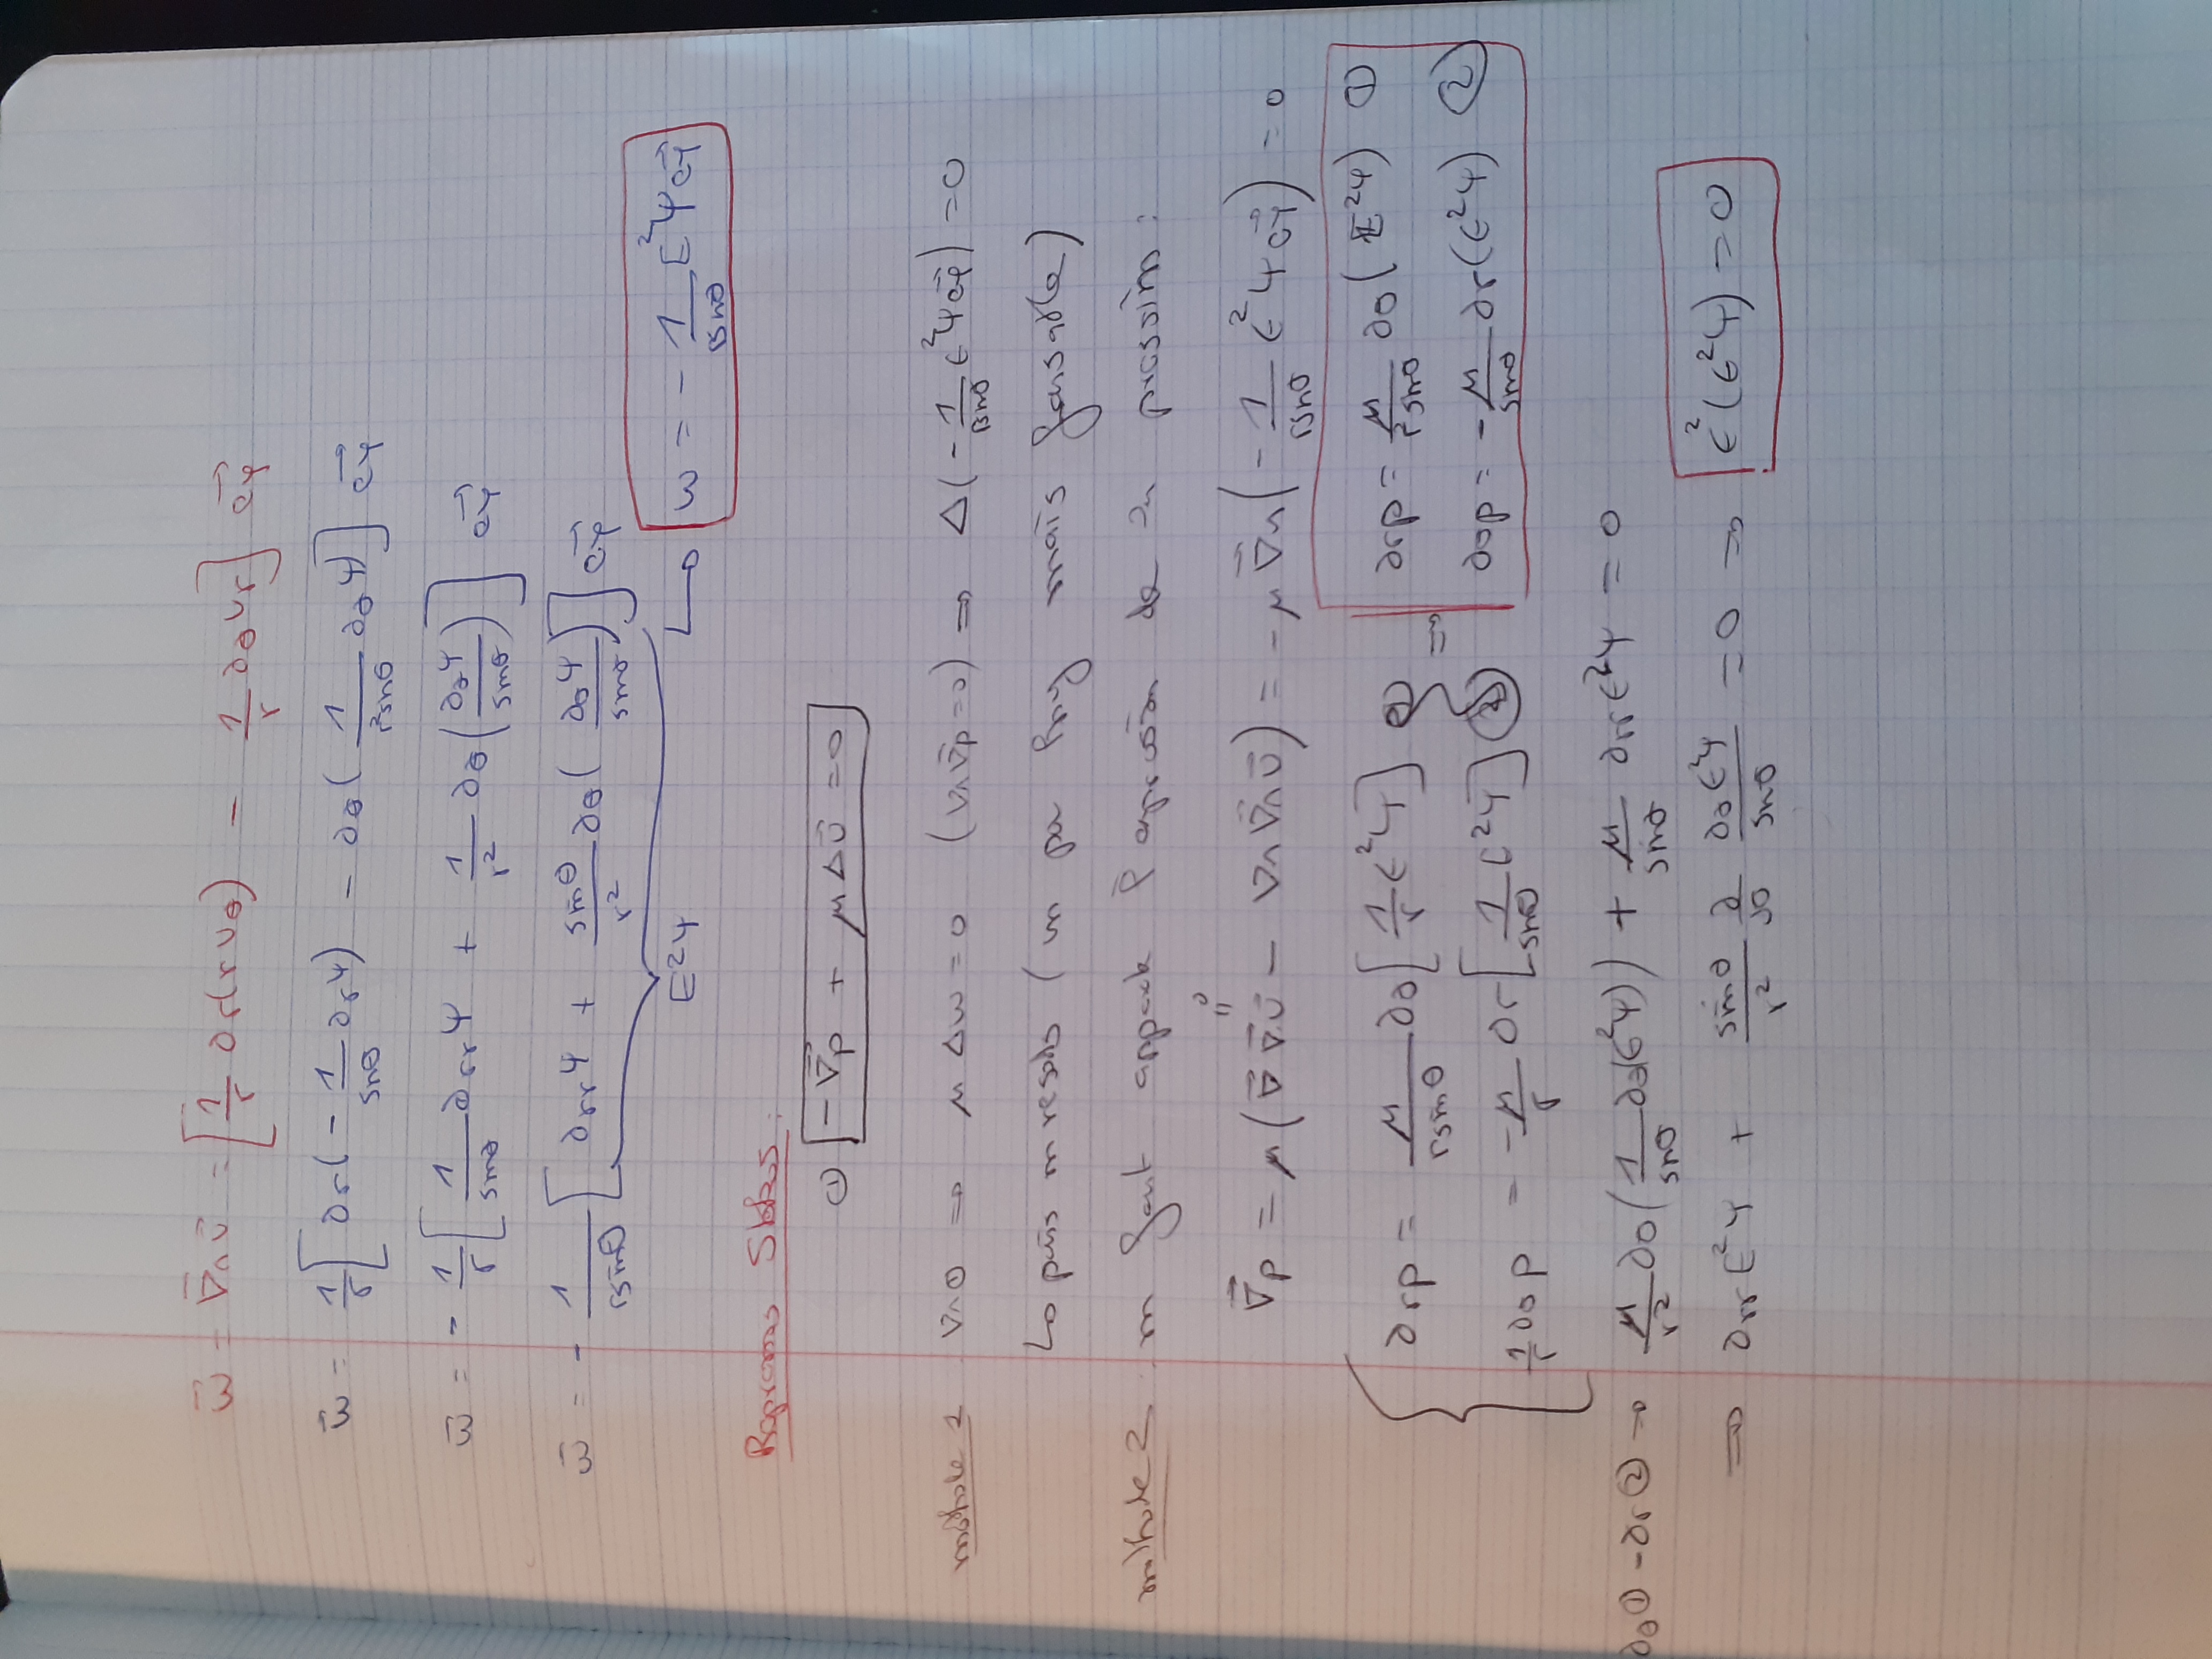 $\vec{\omega} = \vec{\nabla} \wedge \vec{u} = \left[ \frac{1}{r} \partial_r (r u_\theta) - \frac{1}{r} \partial_\theta u_r \right] \vec{e_\varphi}$
$\vec{\omega} = \frac{1}{r} \left[ \partial_r \left( -\frac{1}{\sin\theta} \partial_r \psi \right) - \partial_\theta \left( \frac{1}{r^2 \sin\theta} \partial_\theta \psi \right) \right] \vec{e_\varphi}$
$\vec{\omega} = -\frac{1}{r} \left[ \frac{1}{\sin\theta} \partial_{rr} \psi + \frac{1}{r^2} \partial_\theta \left( \frac{\partial_\theta \psi}{\sin\theta} \right) \right] \vec{e_\varphi}$
$\vec{\omega} = -\frac{1}{r \sin\theta} \left[ \partial_{rr} \psi + \frac{\sin\theta}{r^2} \partial_\theta \left( \frac{\partial_\theta \psi}{\sin\theta} \right) \right] \vec{e_\varphi}$
$E^2 \psi$ ↳ $\omega = -\frac{1}{r \sin\theta} E^2 \psi \vec{e_\varphi}$
Reprenons Stokes :
① $-\vec{\nabla} p + \mu \Delta \vec{u} = 0$
méthode 1 $\nabla \wedge$ ① $\Rightarrow \mu \Delta \omega = 0$ $(\nabla \wedge \vec{\nabla} p = 0) \Rightarrow \Delta \left( -\frac{1}{r \sin\theta} E^2 \psi \vec{e_\varphi} \right) = 0$
↳ puis on resouds (un peu long mais faisable)
méthode 2 on fait l'expression de la pression :
$\vec{\nabla} p = \mu ( \vec{\nabla} \overset{= 0}{\vec{\nabla} . \vec{u}} - \nabla \wedge \vec{\nabla} \wedge \vec{u} ) = -\mu \vec{\nabla} \wedge \left( -\frac{1}{r \sin\theta} E^2 \psi \vec{e_\varphi} \right) = 0$
$\partial_r p = \frac{\mu}{r \sin\theta} \partial_\theta \left[ \frac{1}{r} E^2 \psi \right]$ ① $\Rightarrow$ $\partial_r p = \frac{\mu}{r^2 \sin\theta} \partial_\theta ( E^2 \psi )$ ①
$\frac{1}{r} \partial_\theta p = -\frac{\mu}{r} \partial_r \left[ \frac{1}{\sin\theta} E^2 \psi \right]$ ② $\partial_\theta p = -\frac{\mu}{\sin\theta} \partial_r ( E^2 \psi )$ ②
$\partial_\theta$ ① $- \partial_r$ ② $\Rightarrow \frac{\mu}{r^2} \partial_\theta \left( \frac{1}{\sin\theta} \partial_\theta ( E^2 \psi ) \right) + \frac{\mu}{\sin\theta} \partial_{rr} E^2 \psi = 0$
$\Rightarrow \partial_{rr} E^2 \psi + \frac{\sin\theta}{r^2} \frac{\partial}{\partial\theta} \frac{\partial_\theta E^2 \psi}{\sin\theta} = 0 \Rightarrow E^2 ( E^2 \psi ) = 0$